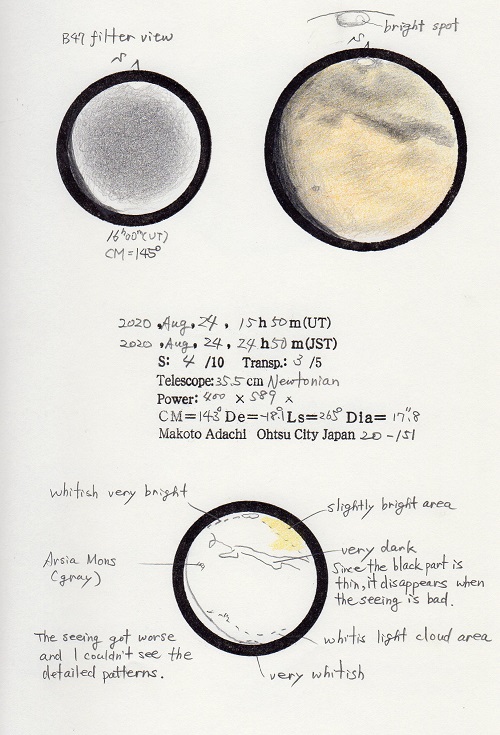 B47 filter view
S
16h00m(UT)
CM=145°
bright spot
S
2020 , Aug, 24 , 15 h 50 m(UT)
2020 , Aug, 24 , 24 h 50 m(JST)
S: 4 /10 Transp.: 3 /5
Telescope: 35.5 cm Newtonian
Power: 400 × 589 ×
CM=143° De=-18.9 Ls=265° Dia= 17".8
Makoto Adachi Ohtsu City Japan 20-151
whitish very bright
slightly bright area
very dark
Since the black part is
thin, it disappears when
the seeing is bad.
Arsia Mons
(gray)
whitis light cloud area
The seeing got worse
and I couldn't see the
detailed patterns.
very whitish